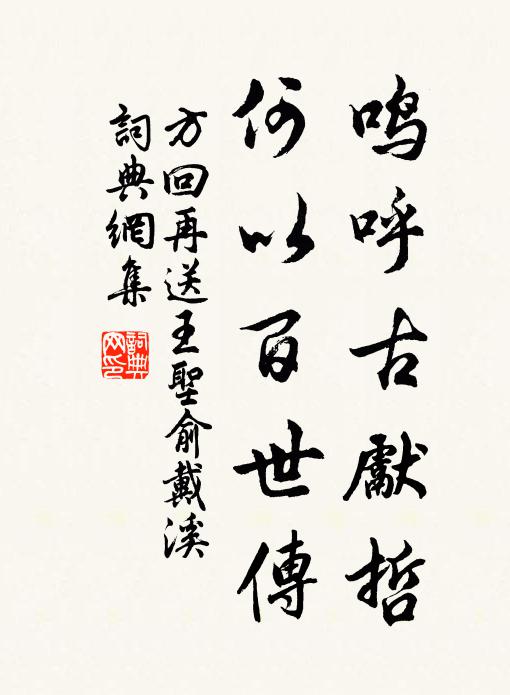 鸣呼古獻哲
何以百世傳
方回再送王聖俞戴溪
詞典網集
詞典网印